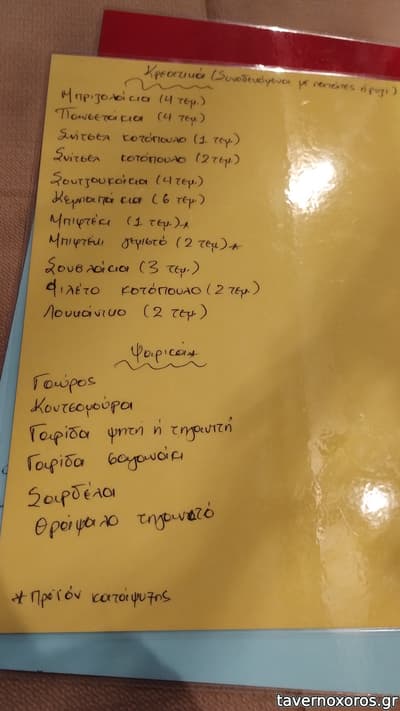 Κρεατικά (Συνοδευόμενα με πατάτες ή ρύζι)
Μπριζολάκια (4 τεμ.)
Πανσετάκια (4 τεμ.)
Σνίτσελ κοτόπουλο (1 τεμ.)
Σνίτσελ κοτόπουλο (2 τεμ.)
Σουτζουκάκια (4 τεμ.)
Κεμπαπάκια (6 τεμ.)
Μπιφτέκι (1 τεμ.)*
Μπιφτέκι γεμιστό (2 τεμ.)*
Σουβλάκια (3 τεμ.)
Φιλέτο κοτόπουλο (2 τεμ.)
Λουκάνικο (2 τεμ.)
Ψαρικά*
Γαύρος
Κουτσομούρα
Γαρίδα ψητή ή τηγανιτή
Γαρίδα σαγανάκι
Σαρδέλα
Θράψαλο τηγανιτό
* Προϊόν κατάψυξης
tavernoxoros.gr